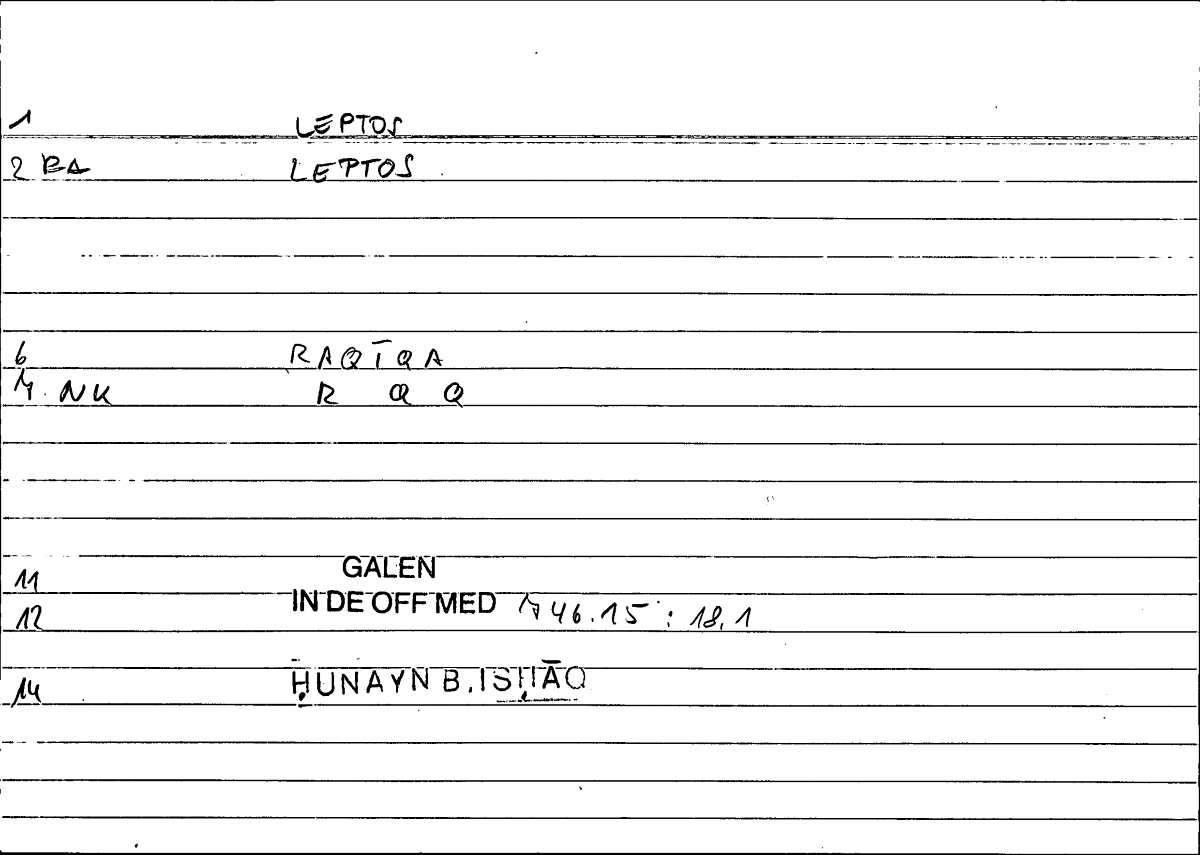 1 LEPTOS
2 BA LEPTOS
6 RAQĪQA
7. NK R Q Q
11 GALEN
12 IN DE OFF MED 746.15 : 18,1
14 ḤUNAYN B. ISḤĀQ